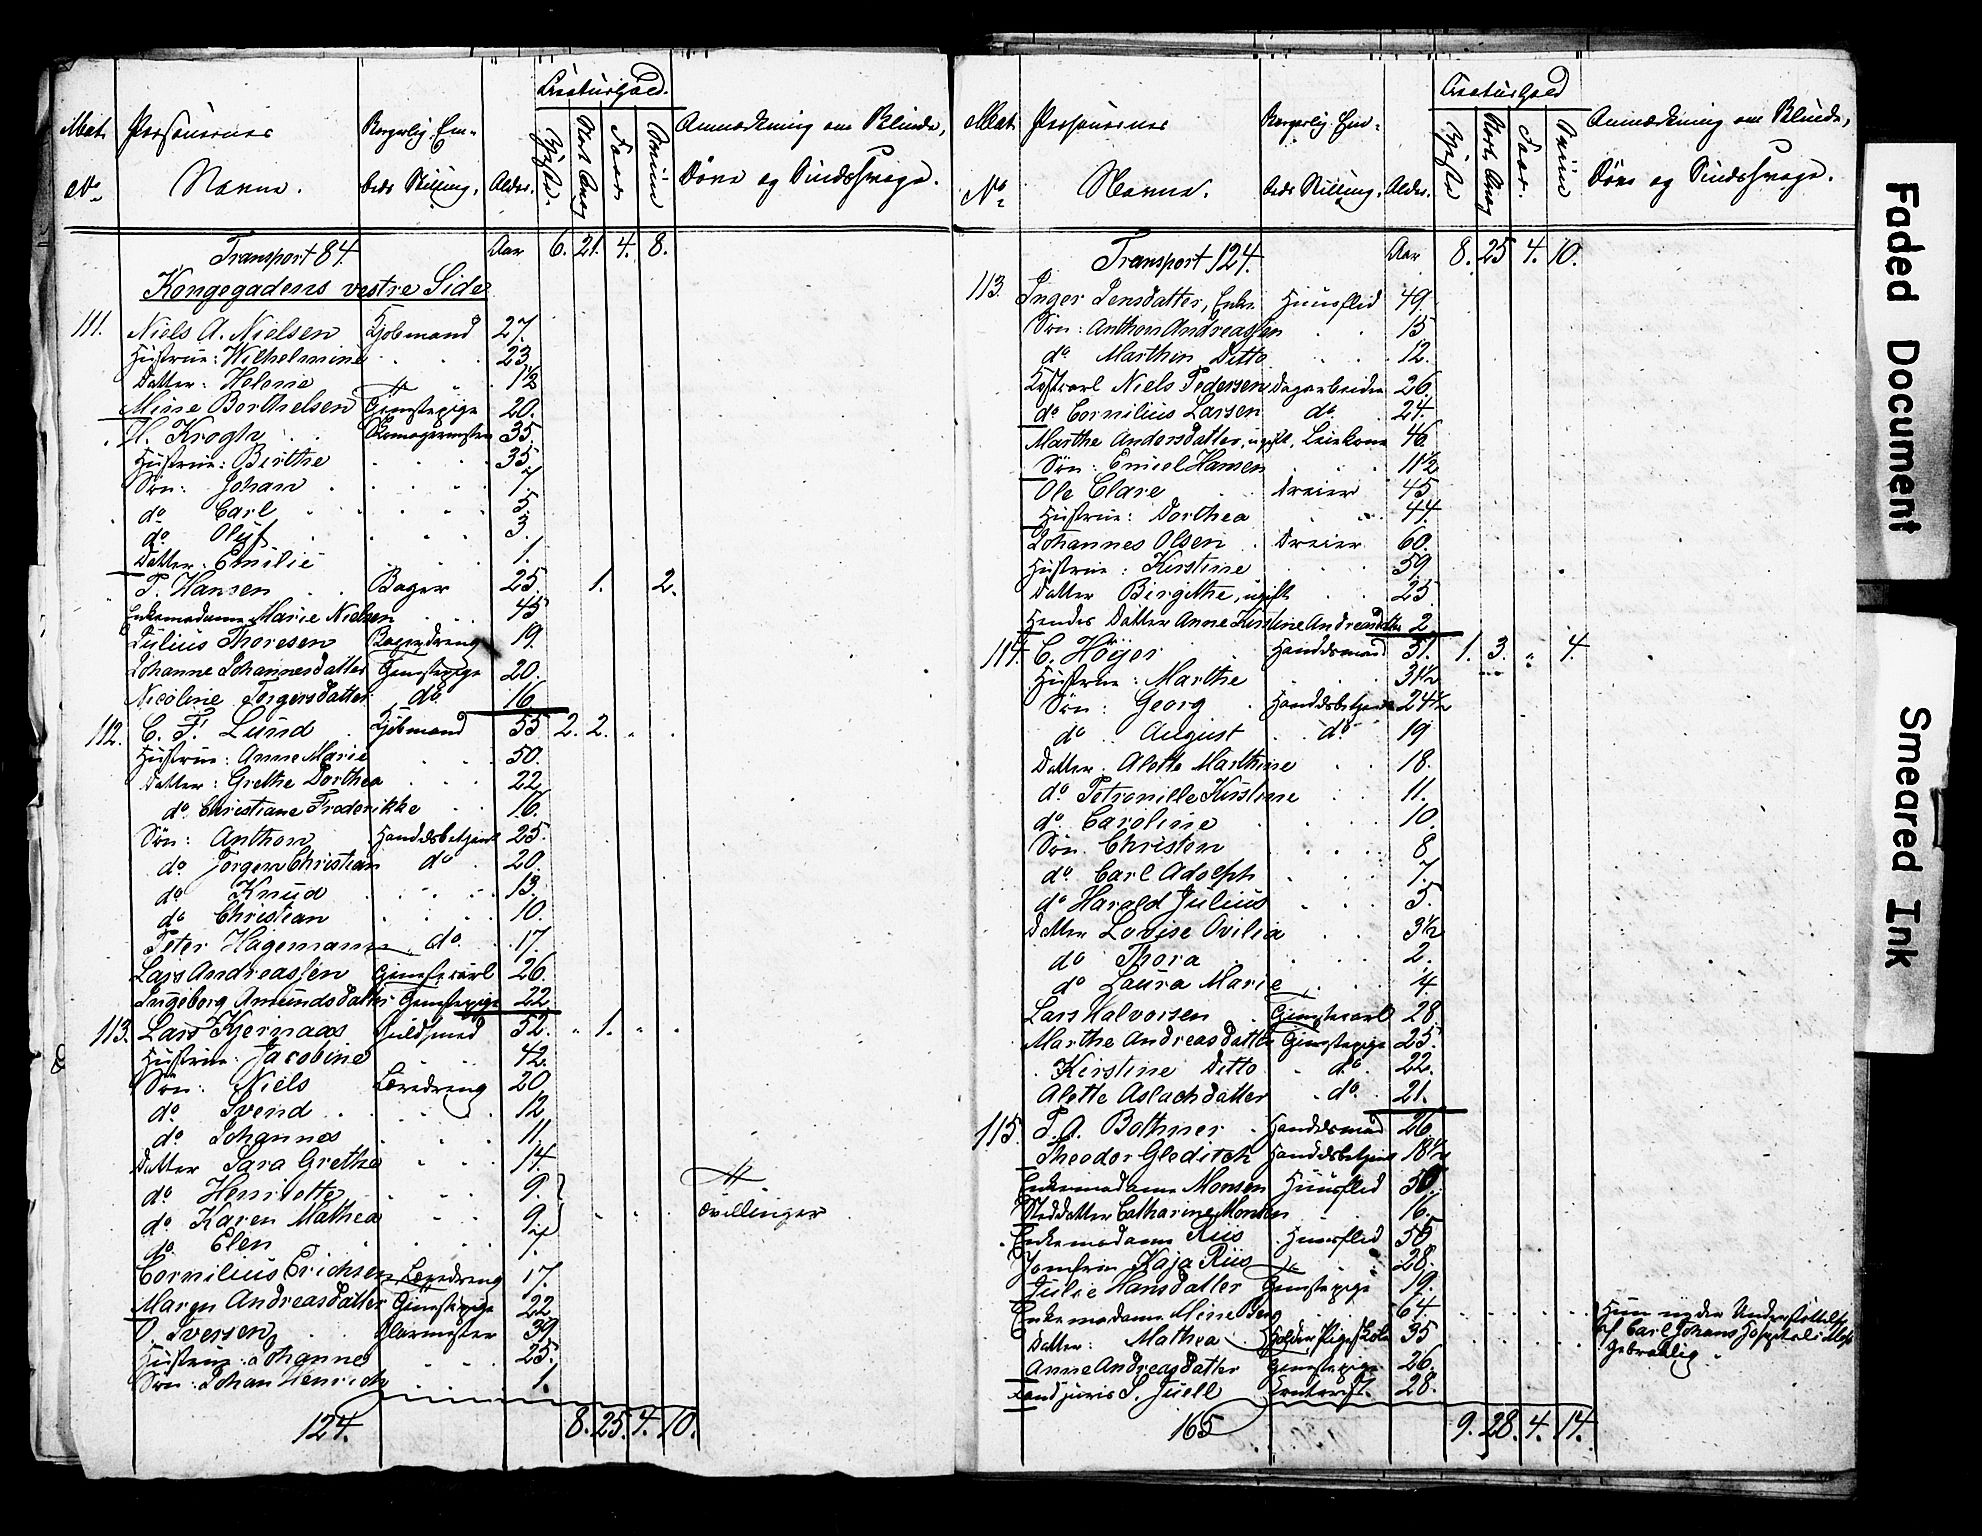 Mat. Personernes Borgerlig Em- Creaturhold. Anmærkning om Blinde,
No Navne. beds Stilling. Alder. Heste. Stort Qvæg Faar Sviin Døve og Sindssvage.
Transport 84. Aar 6. 21. 4. 8.
Kongegadens vestre Side
111. Niels A. Nielsen Kjøbmand 27.
Hustrue: Wilhelmine 23.
Datter: Helene 1½
Mine Berthelsen Tjenstepige 20.
H. Krogh Skomagermester 35.
Hustrue: Berthe 35.
Søn: Johan 7.
do Carl 5.
do Oluf 3.
Datter: Emilie 1.
P. Hansen Bager 25. 1. 2.
Enkemadame Marie Nielsen 45
Julius Thoresen Bagerdreng 19.
Johanne Johannesdatter Tjenstepige 20.
Nicoline Torgersdatter do. 16
112. C. F. Lund Kjøbmand 55 2. 2.
Hustrue: Anne Marie 50.
Datter: Grethe Dorthea 22
do. Christiane Frederikke 16.
Søn: Anthon Handelsbetjent 25.
do Jørgen Christian do 20.
do Knud 13.
do Christian 10.
Peter Hagemann do. 17.
Lars Andreassen Tjenstecarl 26.
Ingeborg Amundsdatter Tjenstepige 22
113. Lars Kjernaas Guldsmed 52. 1.
Hustrue: Jacobine 42.
Søn: Niels Læredreng 20
do. Svend 12
do. Johannes 11.
Datter Sara Grethe 14.
do. Henriette 9.
do Karen Mathea 9. Tvillinger
do. Elen 7.
Cornilius Erichsen Læredreng 17.
Maren Andreasdatter Tjenstepige 22
O. Iversen Glarmester 39.
Hustrue: Johanne 25.
Søn: Johan Henrich 1.
124. 8. 25. 4. 10.
Mat. Personernes Borgerlig Em- Creaturhold Anmærkning om Blinde,
No Navne. beds Stilling. Alder. Heste Stort Qvæg Faar. Sviin Døve og Sindssvage.
Transport 124. Aar 8. 25 4. 10.
113. Inger Jensdatter, Enke Huusflid 49.
Søn: Anthon Andreassen 15
do. Marthin Ditto 12.
Kostcarl Niels Pedersen Dagarbeider 26.
do Cornilius Larsen do. 24.
Marthe Andersdatter, ugift, 46
Søn: Emiel Hansen 11½
Ole Clare Dreier 45
Hustrue: Dorthea 44.
Johannes Olsen Dreier 60.
Hustrue: Kirstine 59.
Datter Birgithe, ugift 25.
Hendes Datter Anne Kirstine Andreasdatter 2
114. C. Höyer Handelsmand 51. 1. 3. 4.
Hustrue: Marthe 31½
Søn: Georg Handelsbetjent 24½
do August do. 19
Datter. Alette Marthine 18.
do. Petronille Kirstine 11.
do. Caroline 10.
Søn. Christen 8
do. Carl Adolph 7.
do Harald Julius 5.
Datter Lovise Ovilia 3½
do Thora 2.
do Laura Marie ¼
Lars Halvorsen Tjenstecarl 28
Marthe Andreasdatter Tjenstepige 25.
Kirstine Ditto do. 22.
Alette Aslachdatter do. 21.
115. P. A. Bothner Handelsmand 26
Theodor Gleditsch Handelsbetjent 18½
Enkemadame Monsen Huusflid 50.
Steddatter Catharine Monsen 16.
Enkemadame Riis Huusflid 56
Jomfru Kaja Riis 28.
Julie Hansdatter Tjenstepige 19.
Enkemadame Mine Berg 64 Hun nyder Understøttelse
Datter: Mathea Holder Pigeskole 35 af Carl Johans
Anne Andreasdatter Tjenstepige 26. Gebrechlig
Cand juris S. Juell 28.
165 9. 28. 4. 14.
Faded Document
Smeared Ink